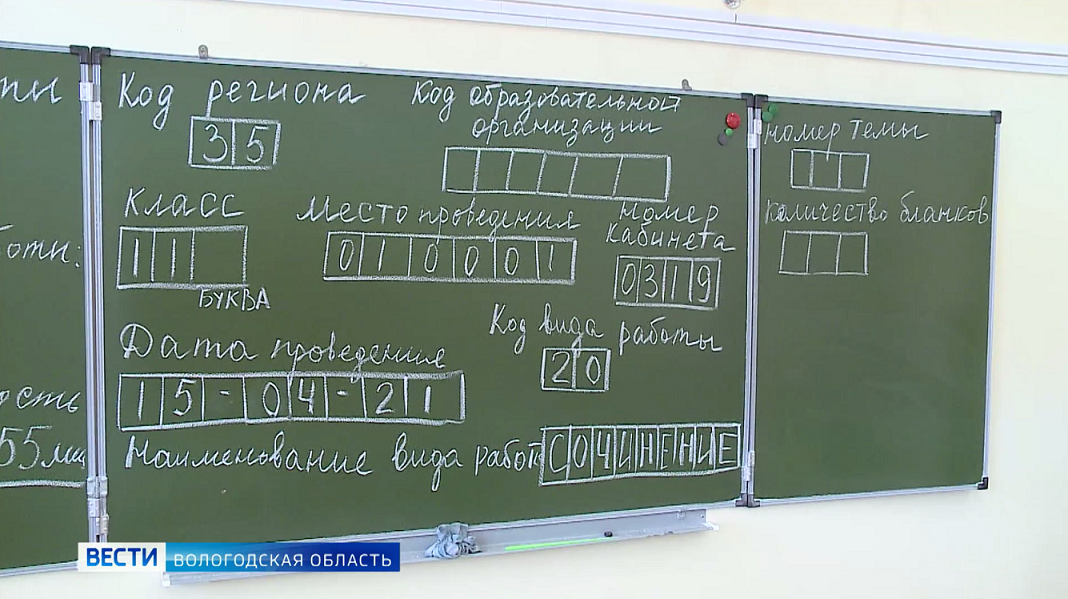 ты
боты:
ость
55 мин
Код региона
35
Код образовательной
организации
Класс
11
БУКВА
Место проведения
010001
номер
кабинета
0319
Код вида работы
20
Дата проведения
15-04-21
Наименование вида работ
СОЧИНЕНИЕ
номер темы
количество бланков
ВЕСТИ ВОЛОГОДСКАЯ ОБЛАСТЬ